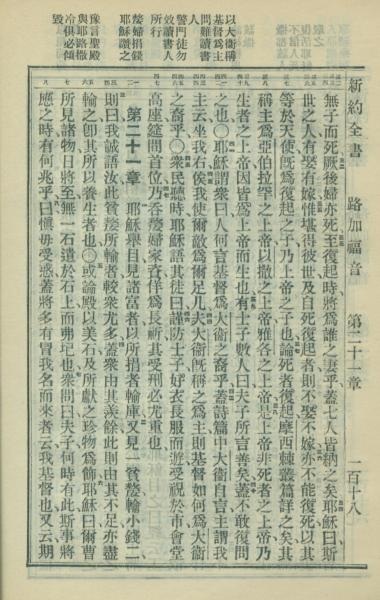 新約全書 路加福音 第二十一章 一百十八
以大衛稱
基督爲主
問難讀書
警門徒勿
效讀書人
所行
嫠婦捐錢
耶穌讚之
豫言聖殿
與耶路撒
冷俱必傾
毀
無子而死厥後婦亦死至復起時將爲誰之妻乎蓋七人皆納之矣耶穌曰斯
世之人有娶有嫁惟堪得彼世及自死復起者則不娶不嫁亦不能復死以其
等於天使旣爲復起之子乃上帝之子也論死者復起摩西棘叢篇詳之矣其
稱主爲亞伯拉罕之上帝以撒之上帝雅各之上帝是上帝非死者之上帝乃
生者之上帝因皆爲上帝而生也有士子數人曰夫子所言善矣蓋不敢復問
之也○耶穌謂衆曰人何言基督爲大衛之裔乎蓋詩篇中大衛自言主謂我
主云坐我右俟我使爾敵爲爾足几夫大衛旣稱之爲主則基督如何爲大衛
之裔乎○衆民聽時耶穌語其徒曰謹防士子好衣長服而遊受祝於市會堂
高座筵間首位乃呑嫠婦家資佯爲長祈其受刑必尤重也
第二十一章 耶穌舉目見諸富者以所捐者輸庫又見一貧嫠輸小錢二
則曰我誠語汝此貧嫠所輸者較衆尤多蓋衆由其羨餘此則由其不足亦盡
輸之卽其所以養生者也○或論殿以美石及所獻之珍物爲飾耶穌曰爾曹
所見諸物日將至無一石遺於石上而弗圮也衆問曰夫子何時有此斯事將
應之時有何兆乎曰愼毋受惑蓋將多有冒我名而來者云我基督也又云期